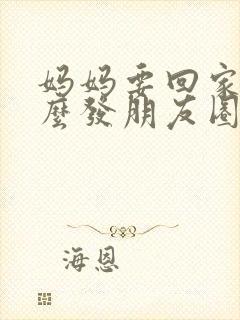 妈妈要回家
麽發朋友圈
海恩